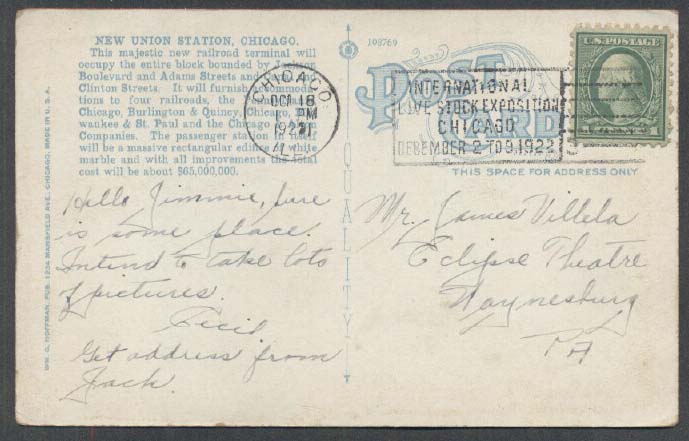 NEW UNION STATION, CHICAGO.
This majestic new railroad terminal will
occupy the entire block bounded by Jackson
Boulevard and Adams Streets and
Clinton Streets. It will furnish accommoda-
tions to four railroads, the
Chicago, Burlington & Quincy, Chicago, Mil-
waukee & St. Paul and the Chicago
Companies. The passenger station itself
will be a massive rectangular edifice of white
marble and with all improvements the total
cost will be about $65,000,000.
Hello Jimmie, Sure
is some place.
Intend to take lots
of pictures.
Cecil
Get address from
Jack.
WM. G. HOFFMAN, PUB. 1234 MANSFIELD AVE., CHICAGO. MADE IN U.S.A.
QUALITY
108769
CHICAGO
OCT 18
PM
1922
ILL
POST CARD
INTERNATIONAL
LIVE STOCK EXPOSITION
CHICAGO
DECEMBER 2 TO 9, 1922
U.S. POSTAGE
1 CENT 1
THIS SPACE FOR ADDRESS ONLY
Mr. James Villela
Eclipse Theatre
Waynesburg
PA